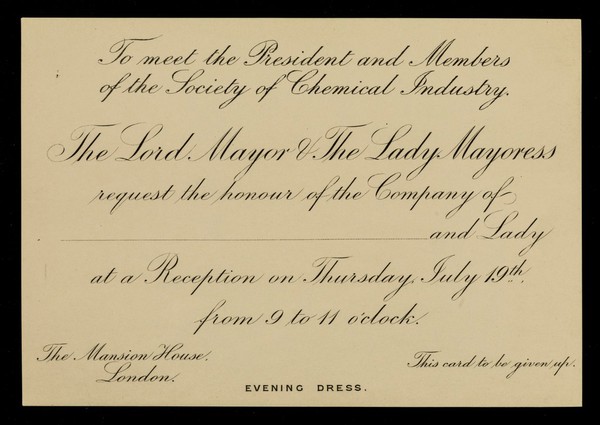 To meet the President and Members
of the Society of Chemical Industry.
The Lord Mayor & The Lady Mayoress
request the honour of the Company of
and Lady
at a Reception on Thursday, July 19th,
from 9 to 11 o'clock.
The Mansion House,
London.
This card to be given up.
EVENING DRESS.